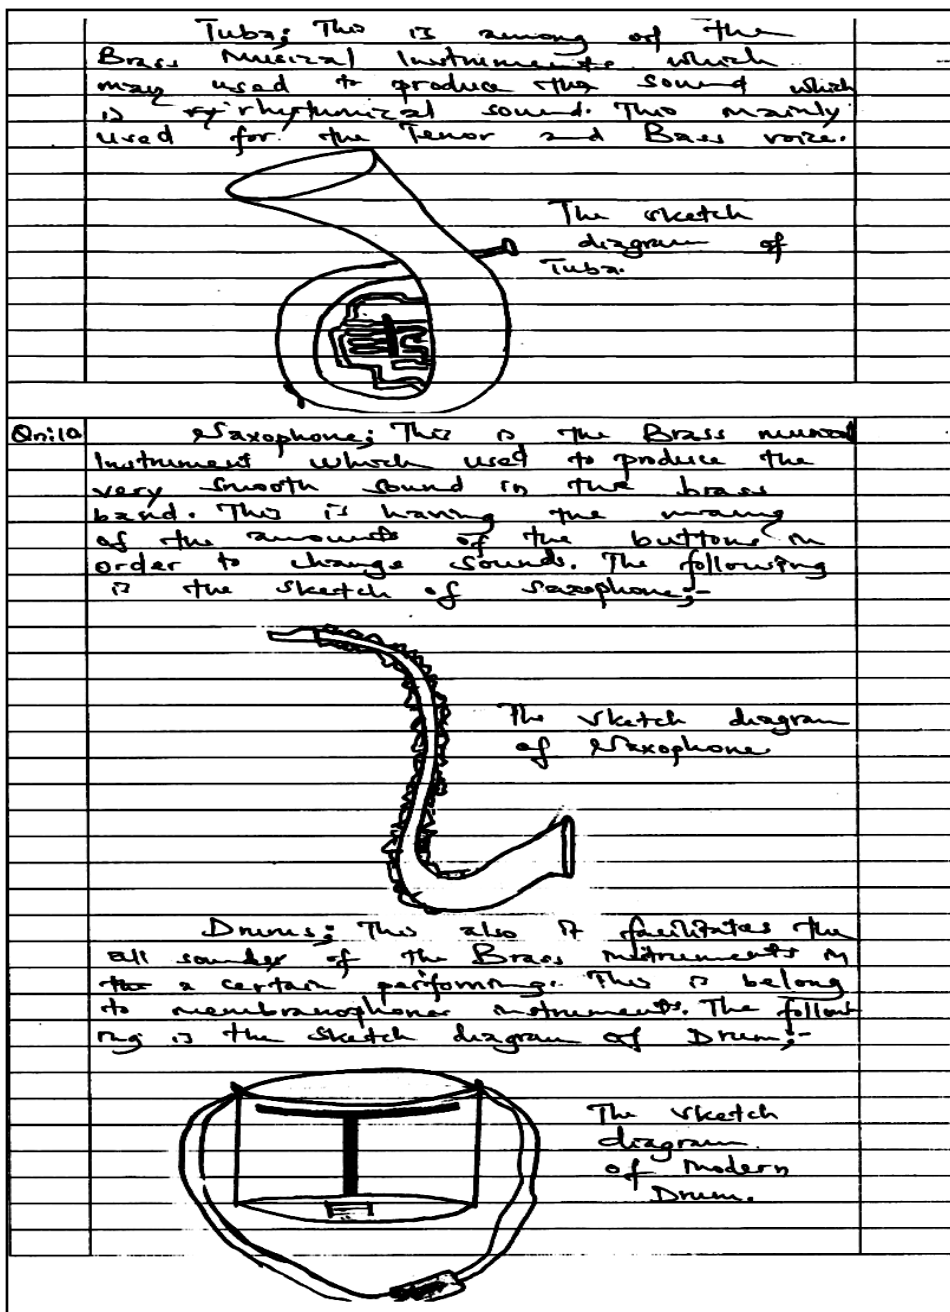 Tuba; This is among of the
Brass Musical Instruments which
may used to produce the sound which
is rhythmical sound. This mainly
used for the Tenor and Bass voice.
The sketch
diagram of
Tuba.
Qn:10 Saxophone; This is the Brass musical
Instrument which used to produce the
very smooth sound in the brass
band. This is having the many
of the amounts of the buttons in
order to change sounds. The following
is the sketch of saxophone;-
The sketch diagram
of Saxophone
Drums; This also it facilitates the
all sounds of the Brass instruments in
a certain performing. This is belong
to membranophones instruments. The follow
ing is the sketch diagram of Drum;-
The sketch
diagram
of modern
Drum.